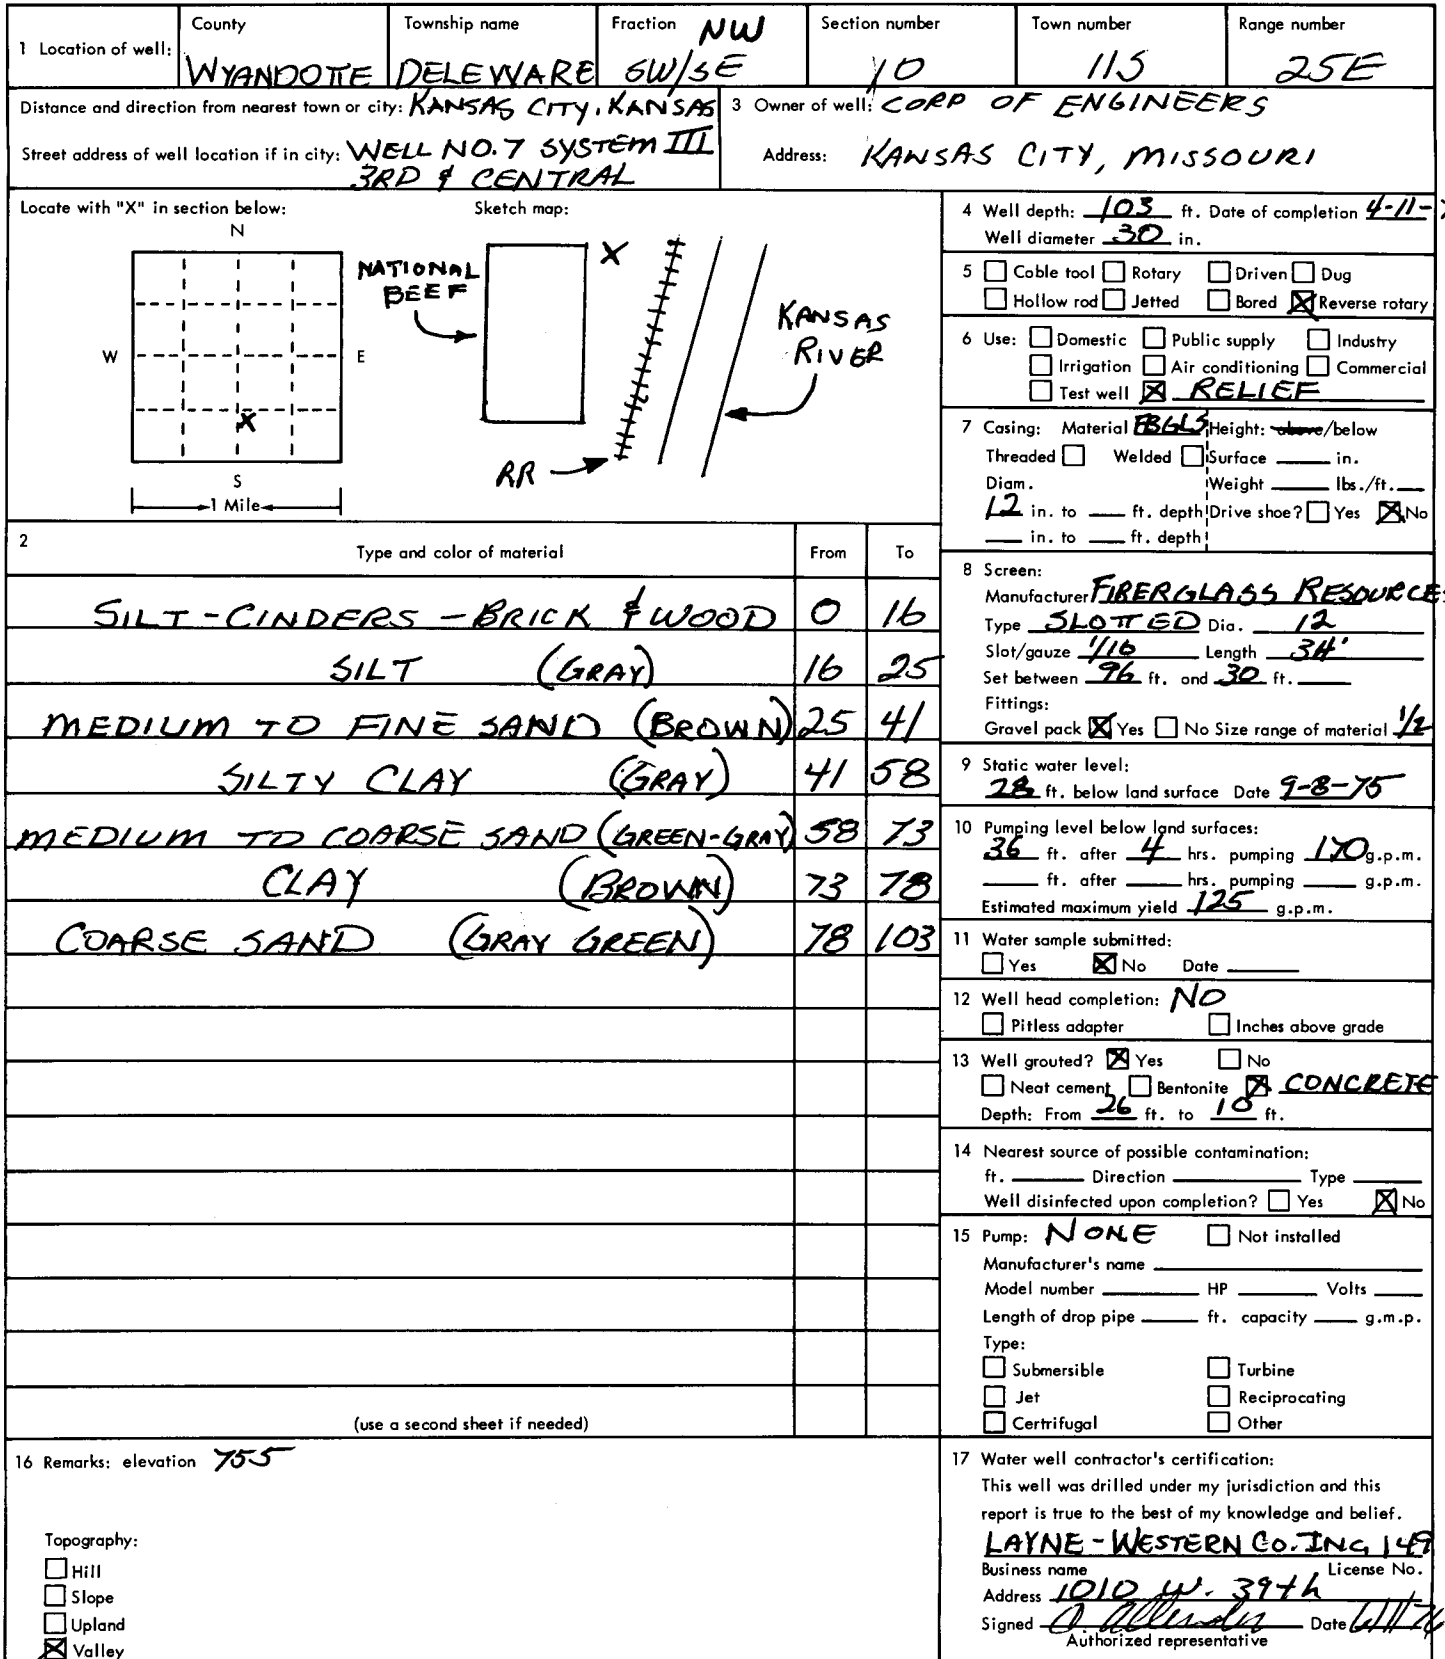 1 Location of well:
County
WYANDOTTE
Township name
DELEWARE
Fraction NW
SW/SE
Section number
10
Town number
11S
Range number
25E
Distance and direction from nearest town or city: KANSAS CITY, KANSAS
Street address of well location if in city: WELL NO. 7 SYSTEM III
3RD & CENTRAL
3 Owner of well: CORP OF ENGINEERS
Address: KANSAS CITY, MISSOURI
Locate with "X" in section below:
N
W E
X
S
1 Mile
Sketch map:
NATIONAL
BEEF
X
KANSAS
RIVER
RR
2 Type and color of material From To
SILT-CINDERS-BRICK & WOOD 0 16
SILT (GRAY) 16 25
MEDIUM TO FINE SAND (BROWN) 25 41
SILTY CLAY (GRAY) 41 58
MEDIUM TO COARSE SAND (GREEN-GRAY) 58 73
CLAY (BROWN) 73 78
COARSE SAND (GRAY GREEN) 78 103
(use a second sheet if needed)
4 Well depth: 103 ft. Date of completion 4-11-
Well diameter 30 in.
5 Cable tool Rotary Driven Dug
Hollow rod Jetted Bored X Reverse rotary
6 Use: Domestic Public supply Industry
Irrigation Air conditioning Commercial
Test well X RELIEF
7 Casing: Material FBGLS Height: above/below
Threaded Welded Surface in.
Diam. Weight lbs./ft.
12 in. to ft. depth Drive shoe? Yes X No
in. to ft. depth
8 Screen:
Manufacturer FIBERGLASS RESOURCES
Type SLOTTED Dia. 12
Slot/gauze 1/16 Length 34'
Set between 96 ft. and 30 ft.
Fittings:
Gravel pack X Yes No Size range of material 1/2
9 Static water level:
28 ft. below land surface Date 9-8-75
10 Pumping level below land surfaces:
36 ft. after 4 hrs. pumping 170 g.p.m.
ft. after hrs. pumping g.p.m.
Estimated maximum yield 125 g.p.m.
11 Water sample submitted:
Yes X No Date
12 Well head completion: NO
Pitless adapter Inches above grade
13 Well grouted? X Yes No
Neat cement Bentonite X CONCRETE
Depth: From 26 ft. to 10 ft.
14 Nearest source of possible contamination:
ft. Direction Type
Well disinfected upon completion? Yes X No
15 Pump: NONE Not installed
Manufacturer's name
Model number HP Volts
Length of drop pipe ft. capacity g.m.p.
Type:
Submersible Turbine
Jet Reciprocating
Certrifugal Other
16 Remarks: elevation 755
Topography:
Hill
Slope
Upland
X Valley
17 Water well contractor's certification:
This well was drilled under my jurisdiction and this
report is true to the best of my knowledge and belief.
LAYNE-WESTERN CO. INC, 149
Business name License No.
Address 1010 W. 39th
Signed Date
Authorized representative